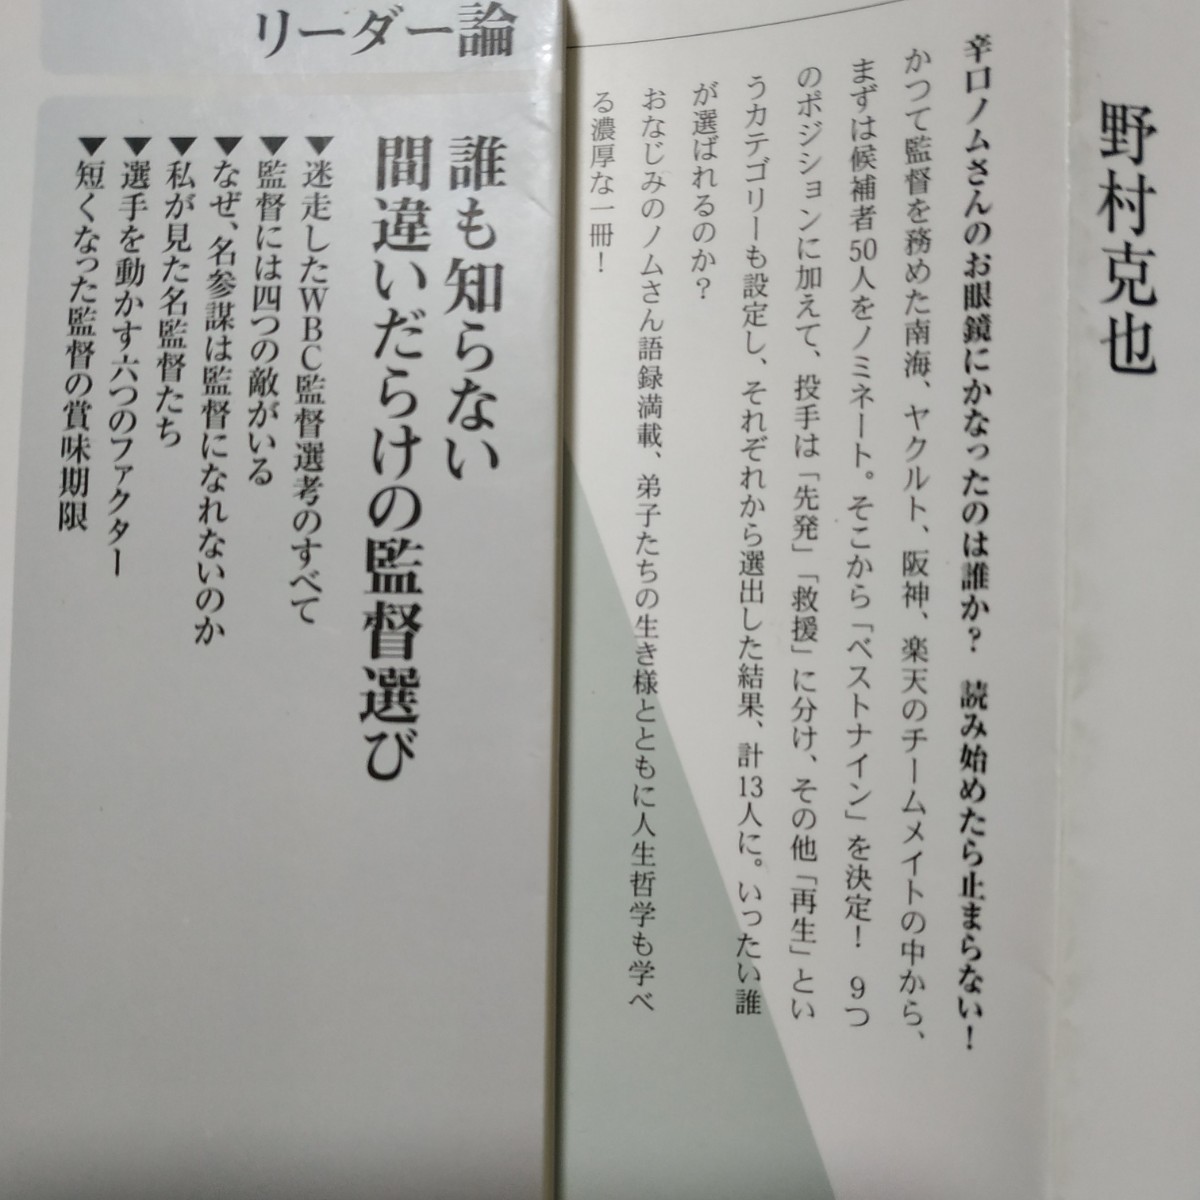 野村克也
辛口ノムさんのお眼鏡にかなったのは誰か? 読み始めたら止まらない!
かつて監督を務めた南海、ヤクルト、阪神、楽天のチームメイトの中から、
まずは候補者50人をノミネート。そこから「ベストナイン」を決定! 9つ
のポジションに加えて、投手は「先発」「救援」に分け、その他「再生」とい
うカテゴリーも設定し、それぞれから選出した結果、計13人に。いったい誰
が選ばれるのか?
おなじみのノムさん語録満載、弟子たちの生き様とともに人生哲学も学べ
る濃厚な一冊!
リーダー論
誰も知らない
間違いだらけの監督選び
▼迷走したWBC監督選考のすべて
▼監督には四つの敵がいる
▼なぜ、名参謀は監督になれないのか
▼私が見た名監督たち
▼選手を動かす六つのファクター
▼短くなった監督の賞味期限